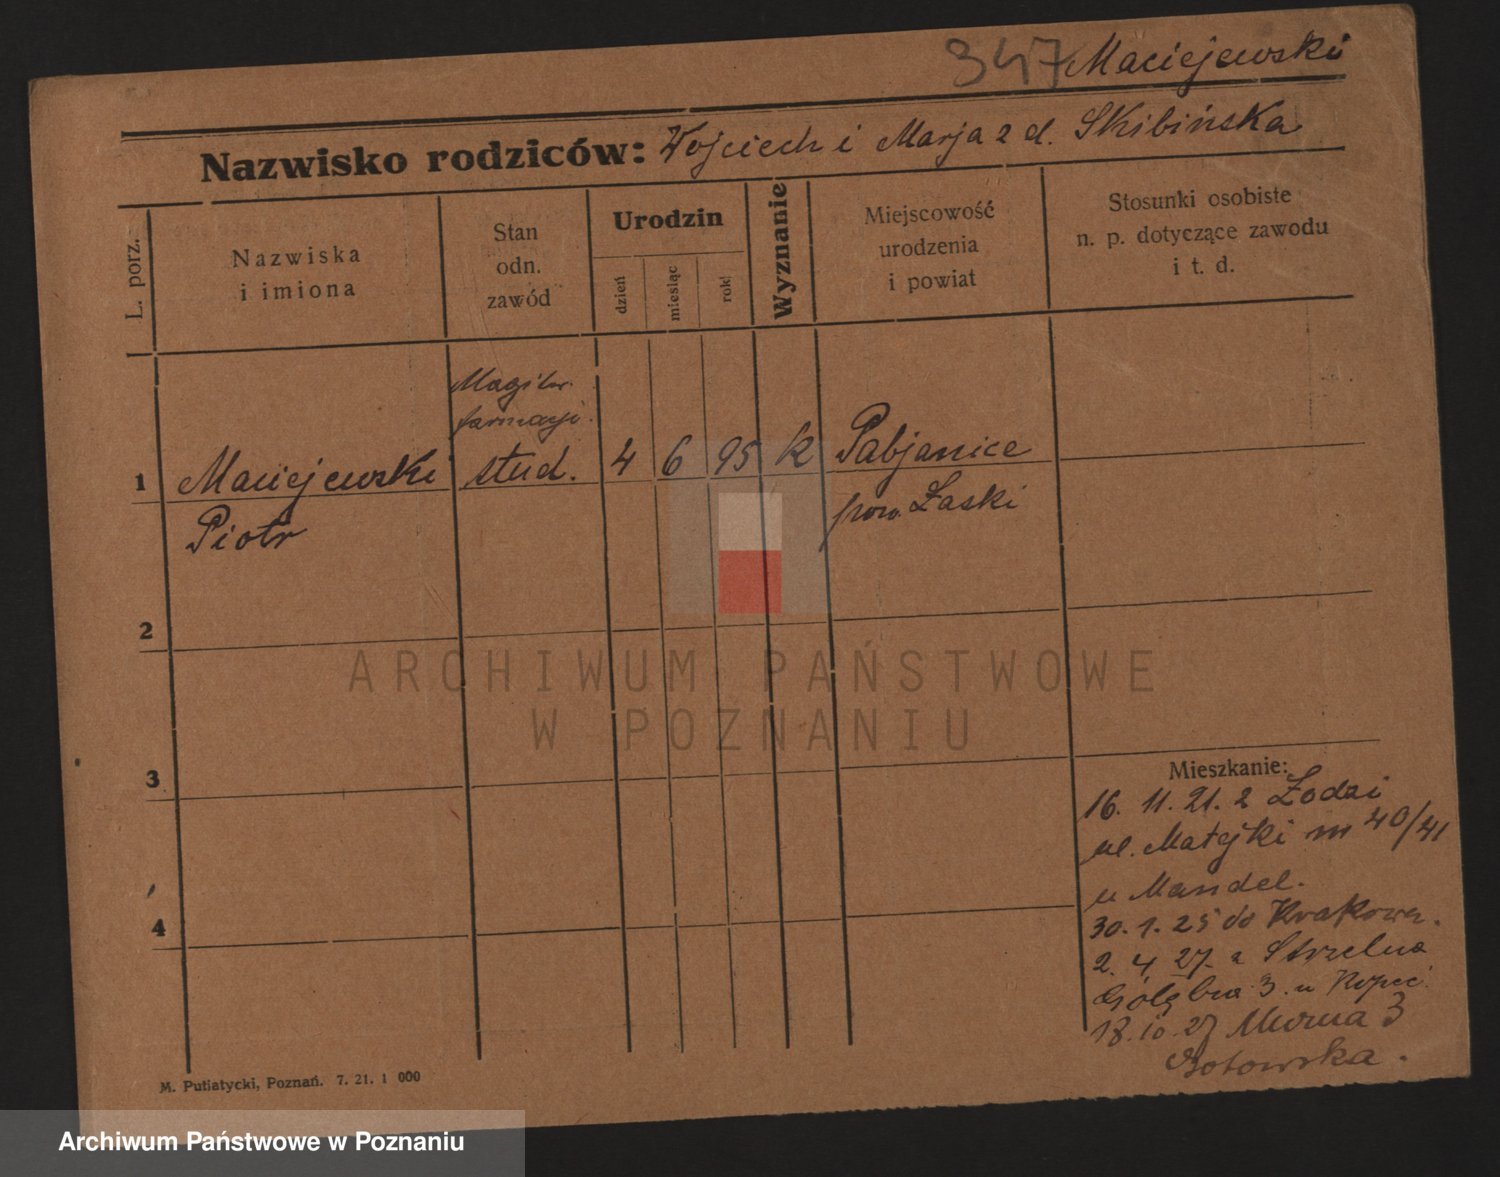 347 Maciejewski
Nazwisko rodziców: Wojciech i Marja z d. Skibińska
L. porz.
Nazwiska
i imiona
Stan
odn.
zawód
Urodzin
dzień
miesiąc
rok
Wyznanie
Miejscowość
urodzenia
i powiat
Stosunki osobiste
n. p. dotyczące zawodu
i t. d.
Magister
farmacji
1 Maciejewski stud. 4 6 95 k Pabjanice
Piotr pow. Łaski
2
3
4
Mieszkanie:
16. 11. 21. z Łodzi
ul. Matejki nr 40/41
u Mandel.
30. 1. 25 do Krakowa.
2. 4. 27. z Strzelna
Gołębia 3. u
18. 10. 27 Murna 3
Botowska.
M. Putiatycki, Poznań. 7. 21. 1 000
ARCHIWUM PAŃSTWOWE
W POZNANIU
Archiwum Państwowe w Poznaniu